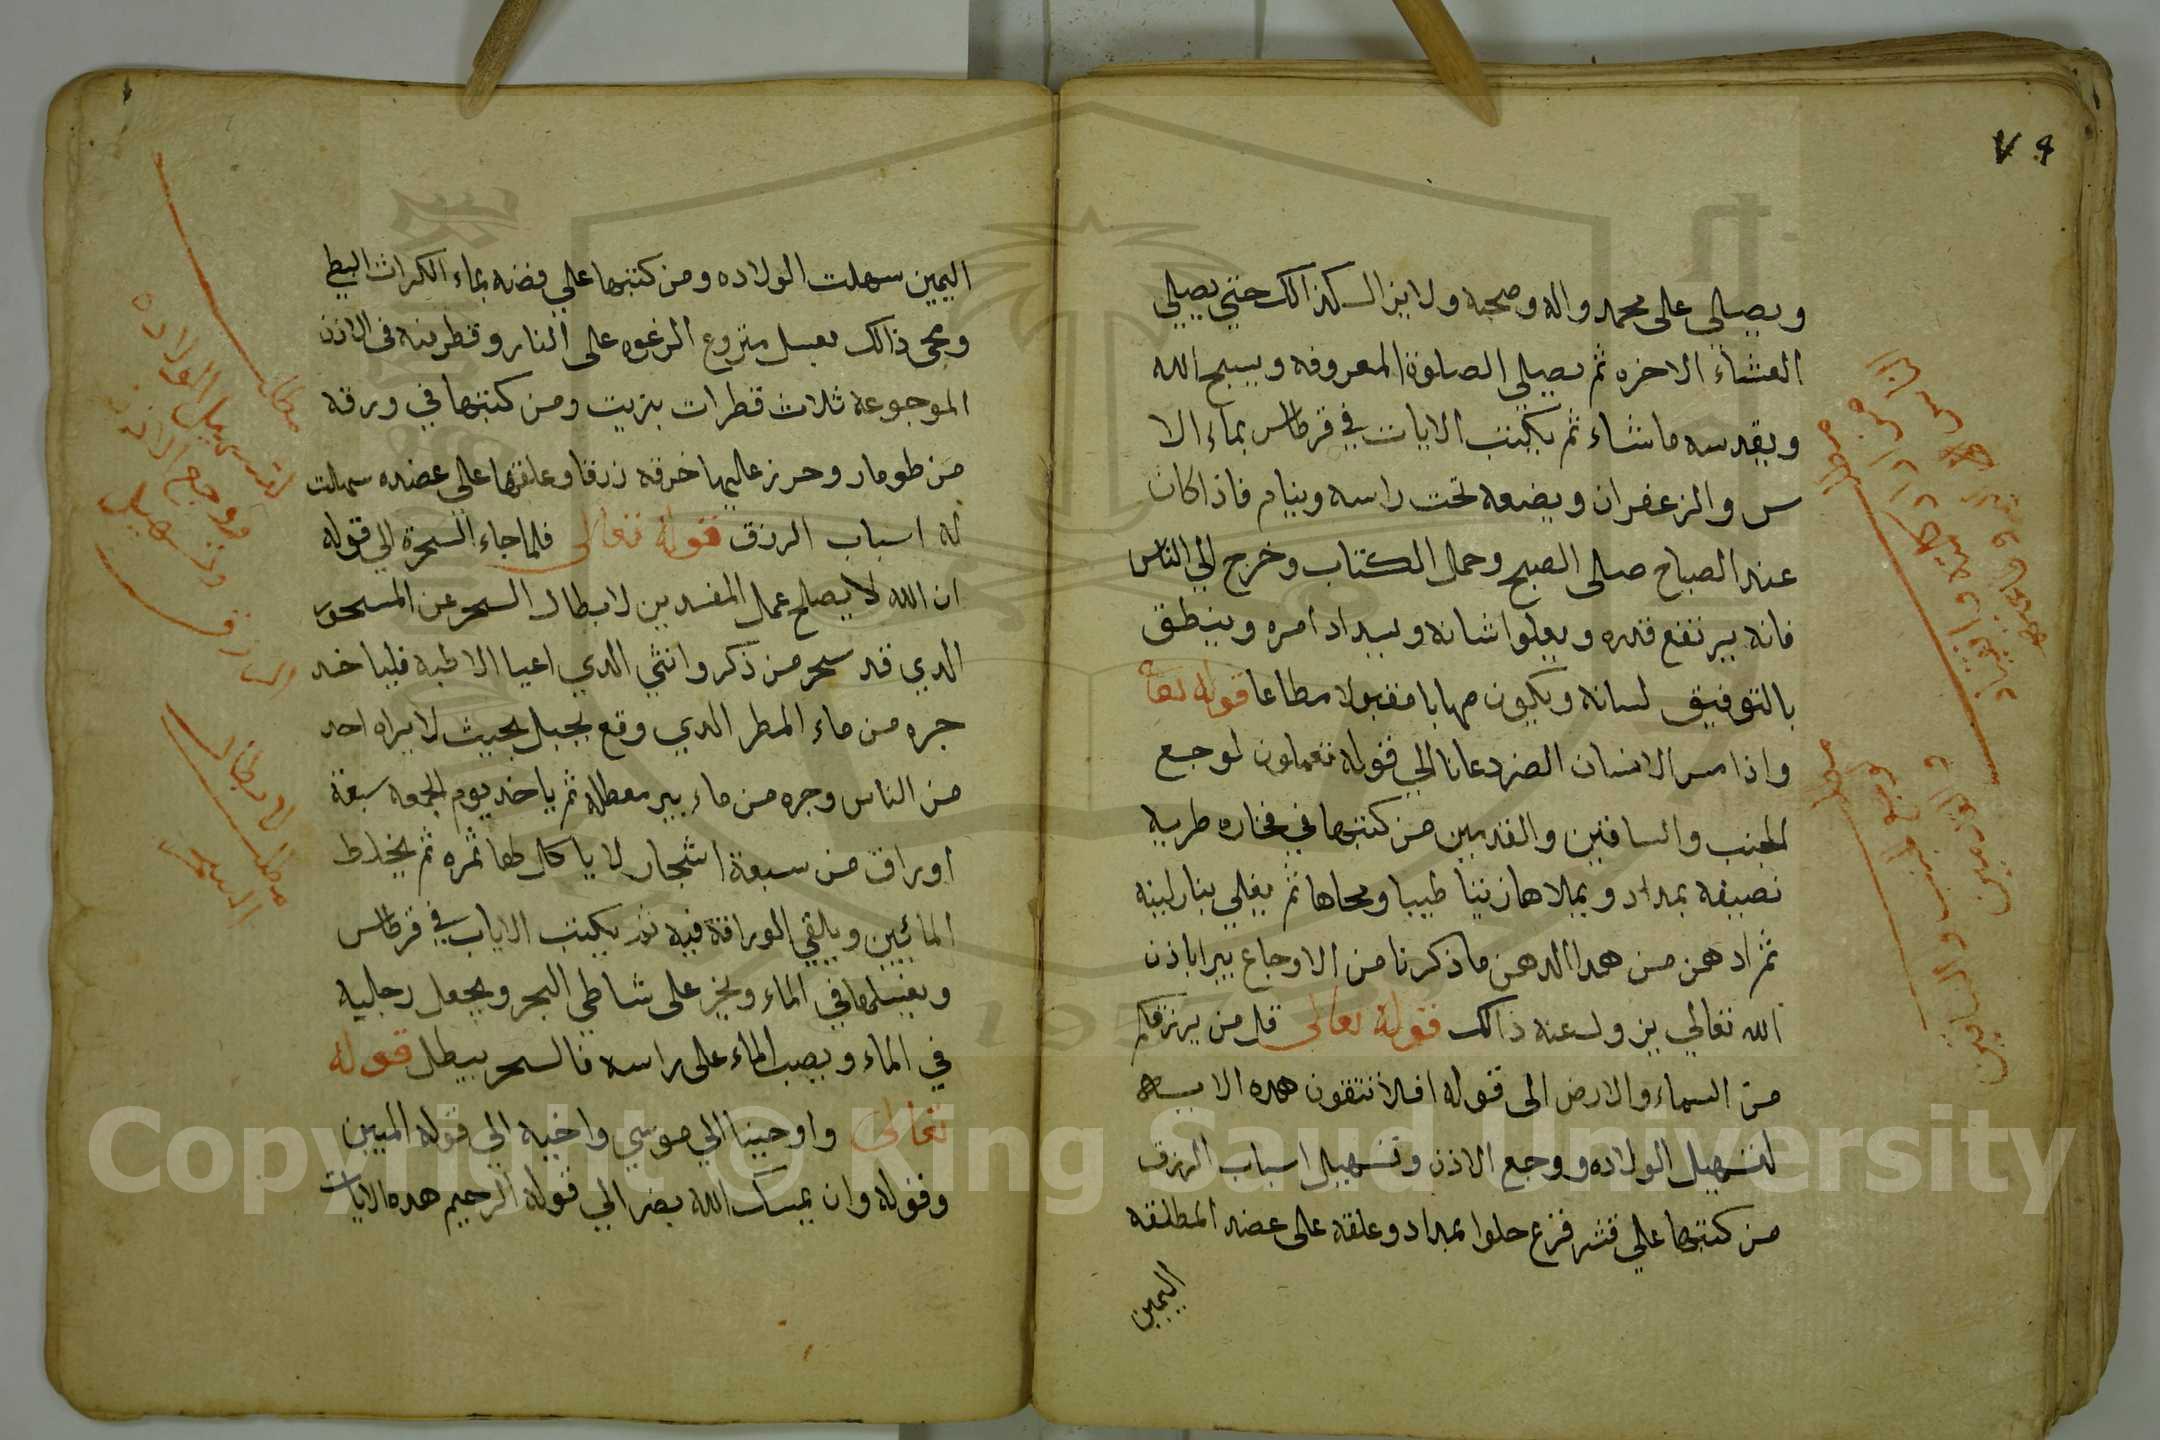 ٧٩
ويصلي على محمد واله وصحبه ولا يزال كذالك حتي يصلي
العشاء الاخره ثم يصلي الصلوة المعروفه ويسبح الله
ويقدسه ماشاء ثم يكتب الايات في قرطاس بماء الا
س والزعفران ويضعه تحت راسه وينام فاذا كان
عند الصباح صلى الصبح وحمل الكتاب وخرج الي الناس
فانه يرتفع قدره ويعلوا شانه وبيداد امره وينطق
بالتوفيق لسانه ويكون مهابا مقبولا مطاعا قوله تعا
واذا مس الانسان الضر دعانا الي قوله تعملون لوجع
الجنب والساقين والقدمين من كتبها في فخاره طريه
نضيفه بمداد ويملاها زيتا طيبا ومحاها ثم يغلي بنار لينه
ثم ادهن من هدا الدهن ماذكرنا من الاوجاع يبرا باذن
الله تعالي يزول عنه ذالك قوله تعالى قل من يرزقكم
من السماء والارض الى قوله افلا تتقون هده الايه
لتسهيل الولاده ووجع الاذن وتسهيل اسباب الرزق
من كتبها علي قشر قرع حلوا بمداد وعلقه على عضد المطلقه
اليمين
اليمين سهلت الولاده ومن كتبها علي فضه بماء الكراث البطي
ومحى ذالك بعسل منزوع الرغوه على النار وقطر منه في الاذن
الموجوعه ثلاث قطرات بزيت ومن كتبها في ورقه
من طومار وحرز عليها خرقه زرقا وعلقها علي عضده سهلت
له اسباب الرزق قوله تعالى فلما جاء السحرة الي قوله
ان الله لا يصلح عمل المفسدين لابطال السحر عن المسحور
الدي قد سحر من ذكر وانثي الدي اعيا الاطبه فلياخد
جره من ماء المطر الدي وقع بجبل بحيث لا يراه احد
من الناس وجره من ماء بير معطله ثم ياخد يوم الجمعه سبعة
اوراق من سبعة اشجار لا ياكل لها ثمره ثم يخلط
المائيين ويلقي الوراقة فيه ثم يكتب الاياب في قرطاس
ويغسلها في الماء ويخر على شاطي البحر ويجعل رجليه
في الماء ويصب الماء على راسه فالسحر يبطل قوله
تعالى واوحينا الي موسي واخيه الى قوله المبين
وقوله وان يمسك الله بضر الي قوله الرحيم هده الايات
مطلب
لتسهيل الولاده
ووجع الاذن
وتسهيل
الرزق
مطلب
لابطال
السحر
Copyright © King Saud University